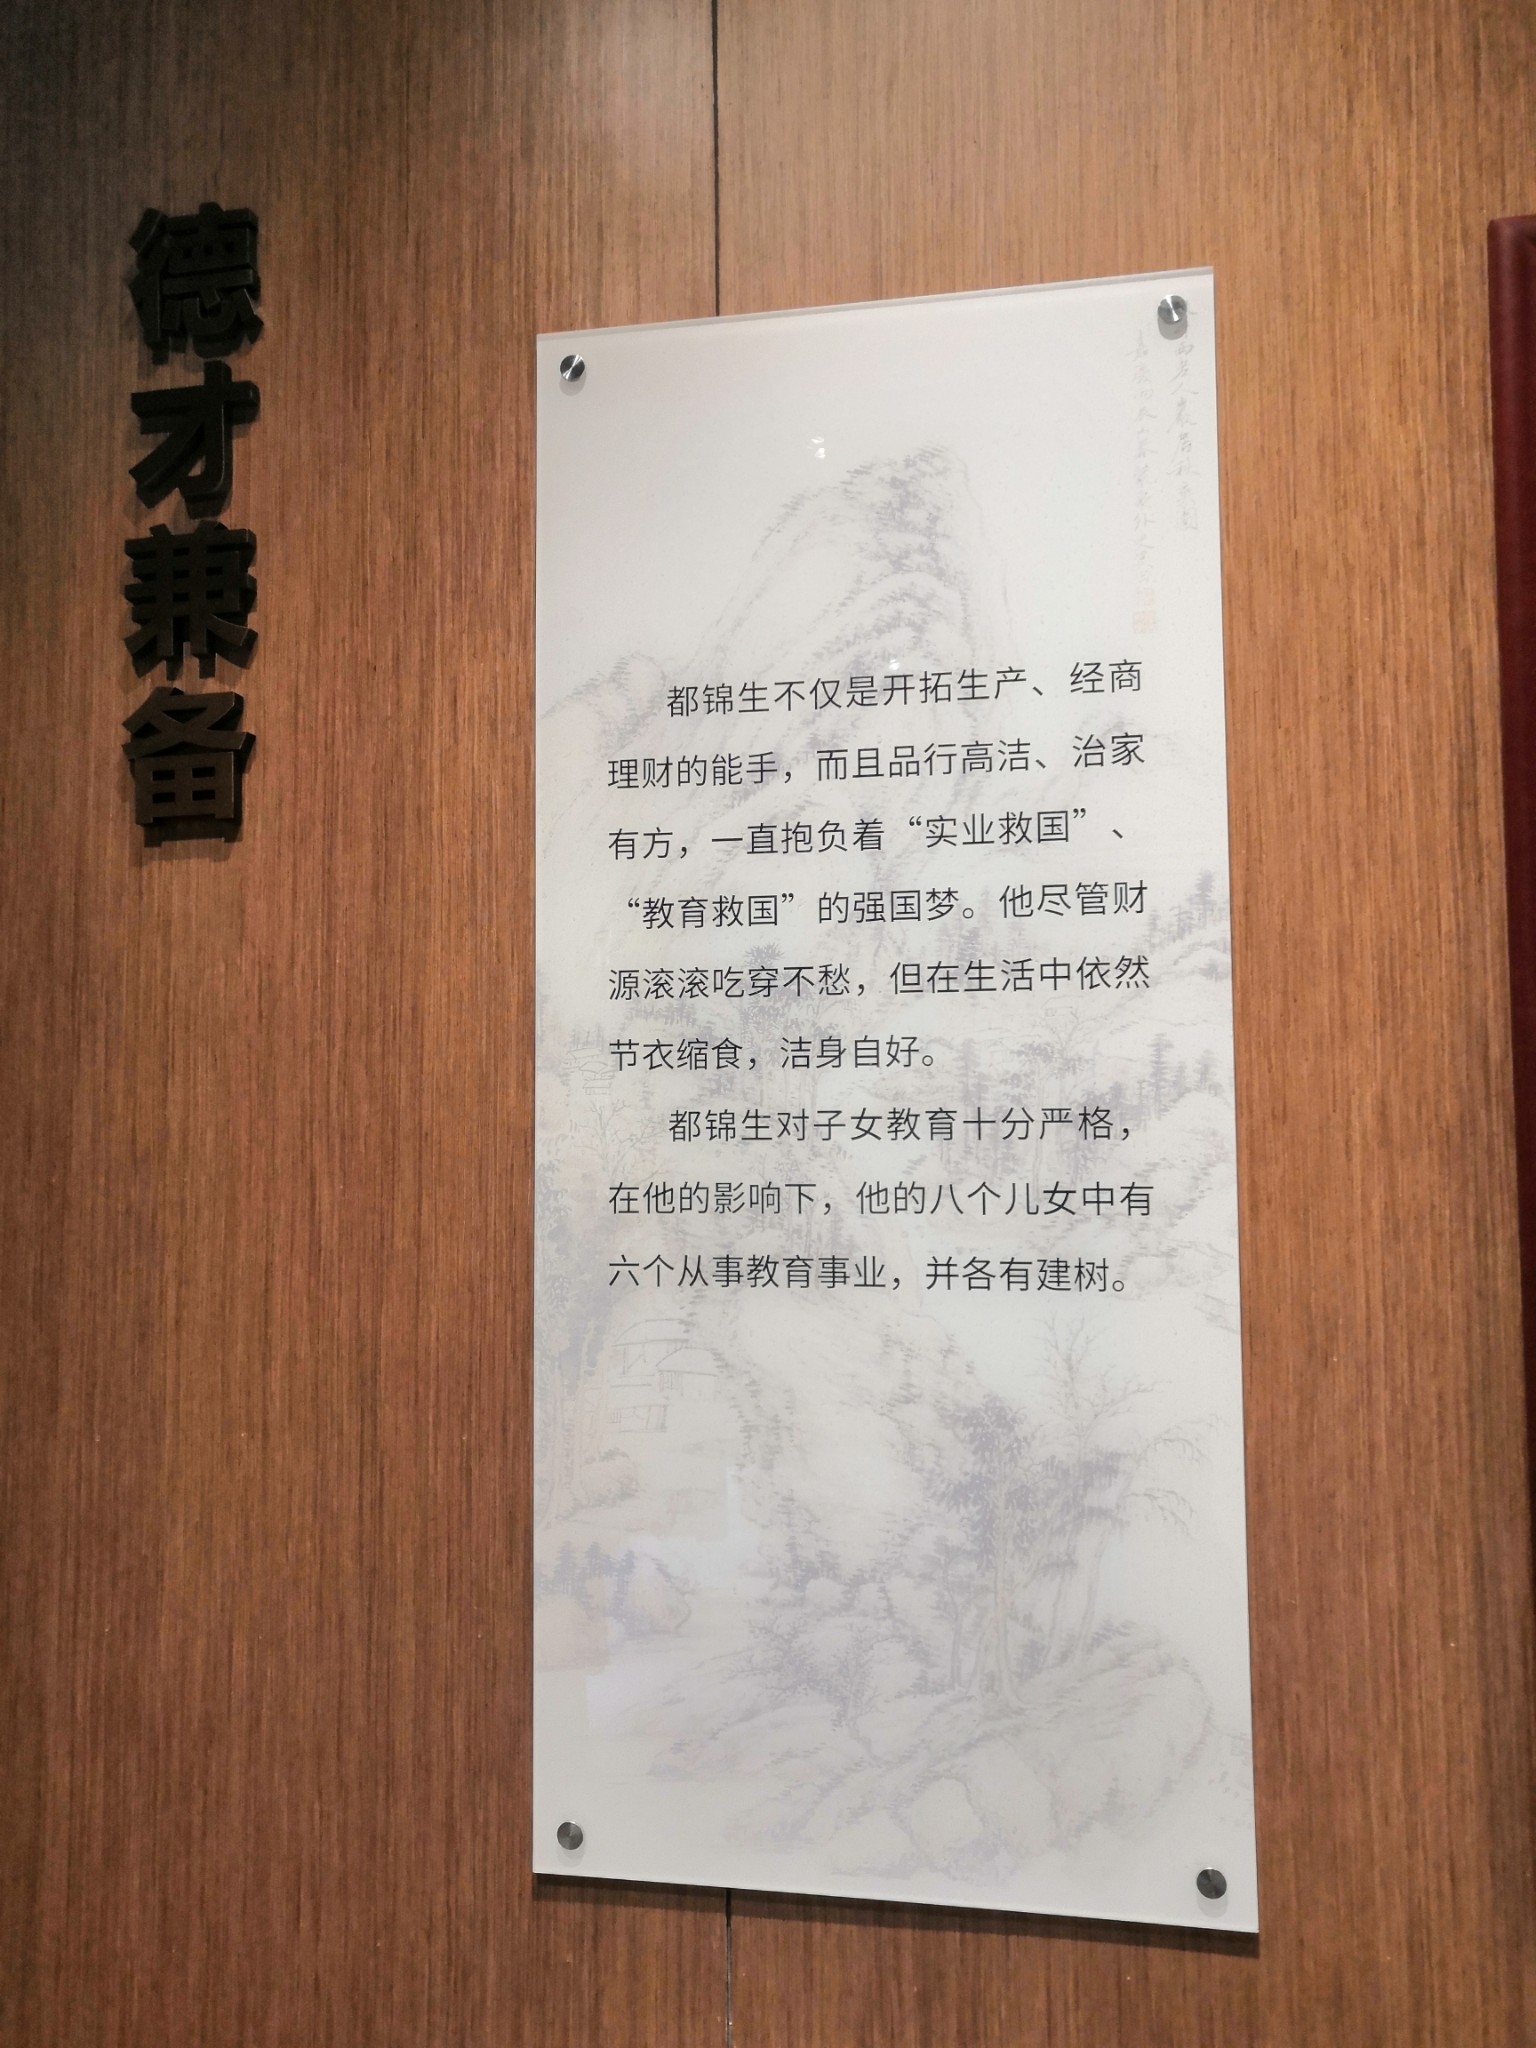 德才兼备
都锦生不仅是开拓生产、经商
理财的能手，而且品行高洁、治家
有方，一直抱负着“实业救国”、
“教育救国”的强国梦。他尽管财
源滚滚吃穿不愁，但在生活中依然
节衣缩食，洁身自好。
都锦生对子女教育十分严格，
在他的影响下，他的八个儿女中有
六个从事教育事业，并各有建树。